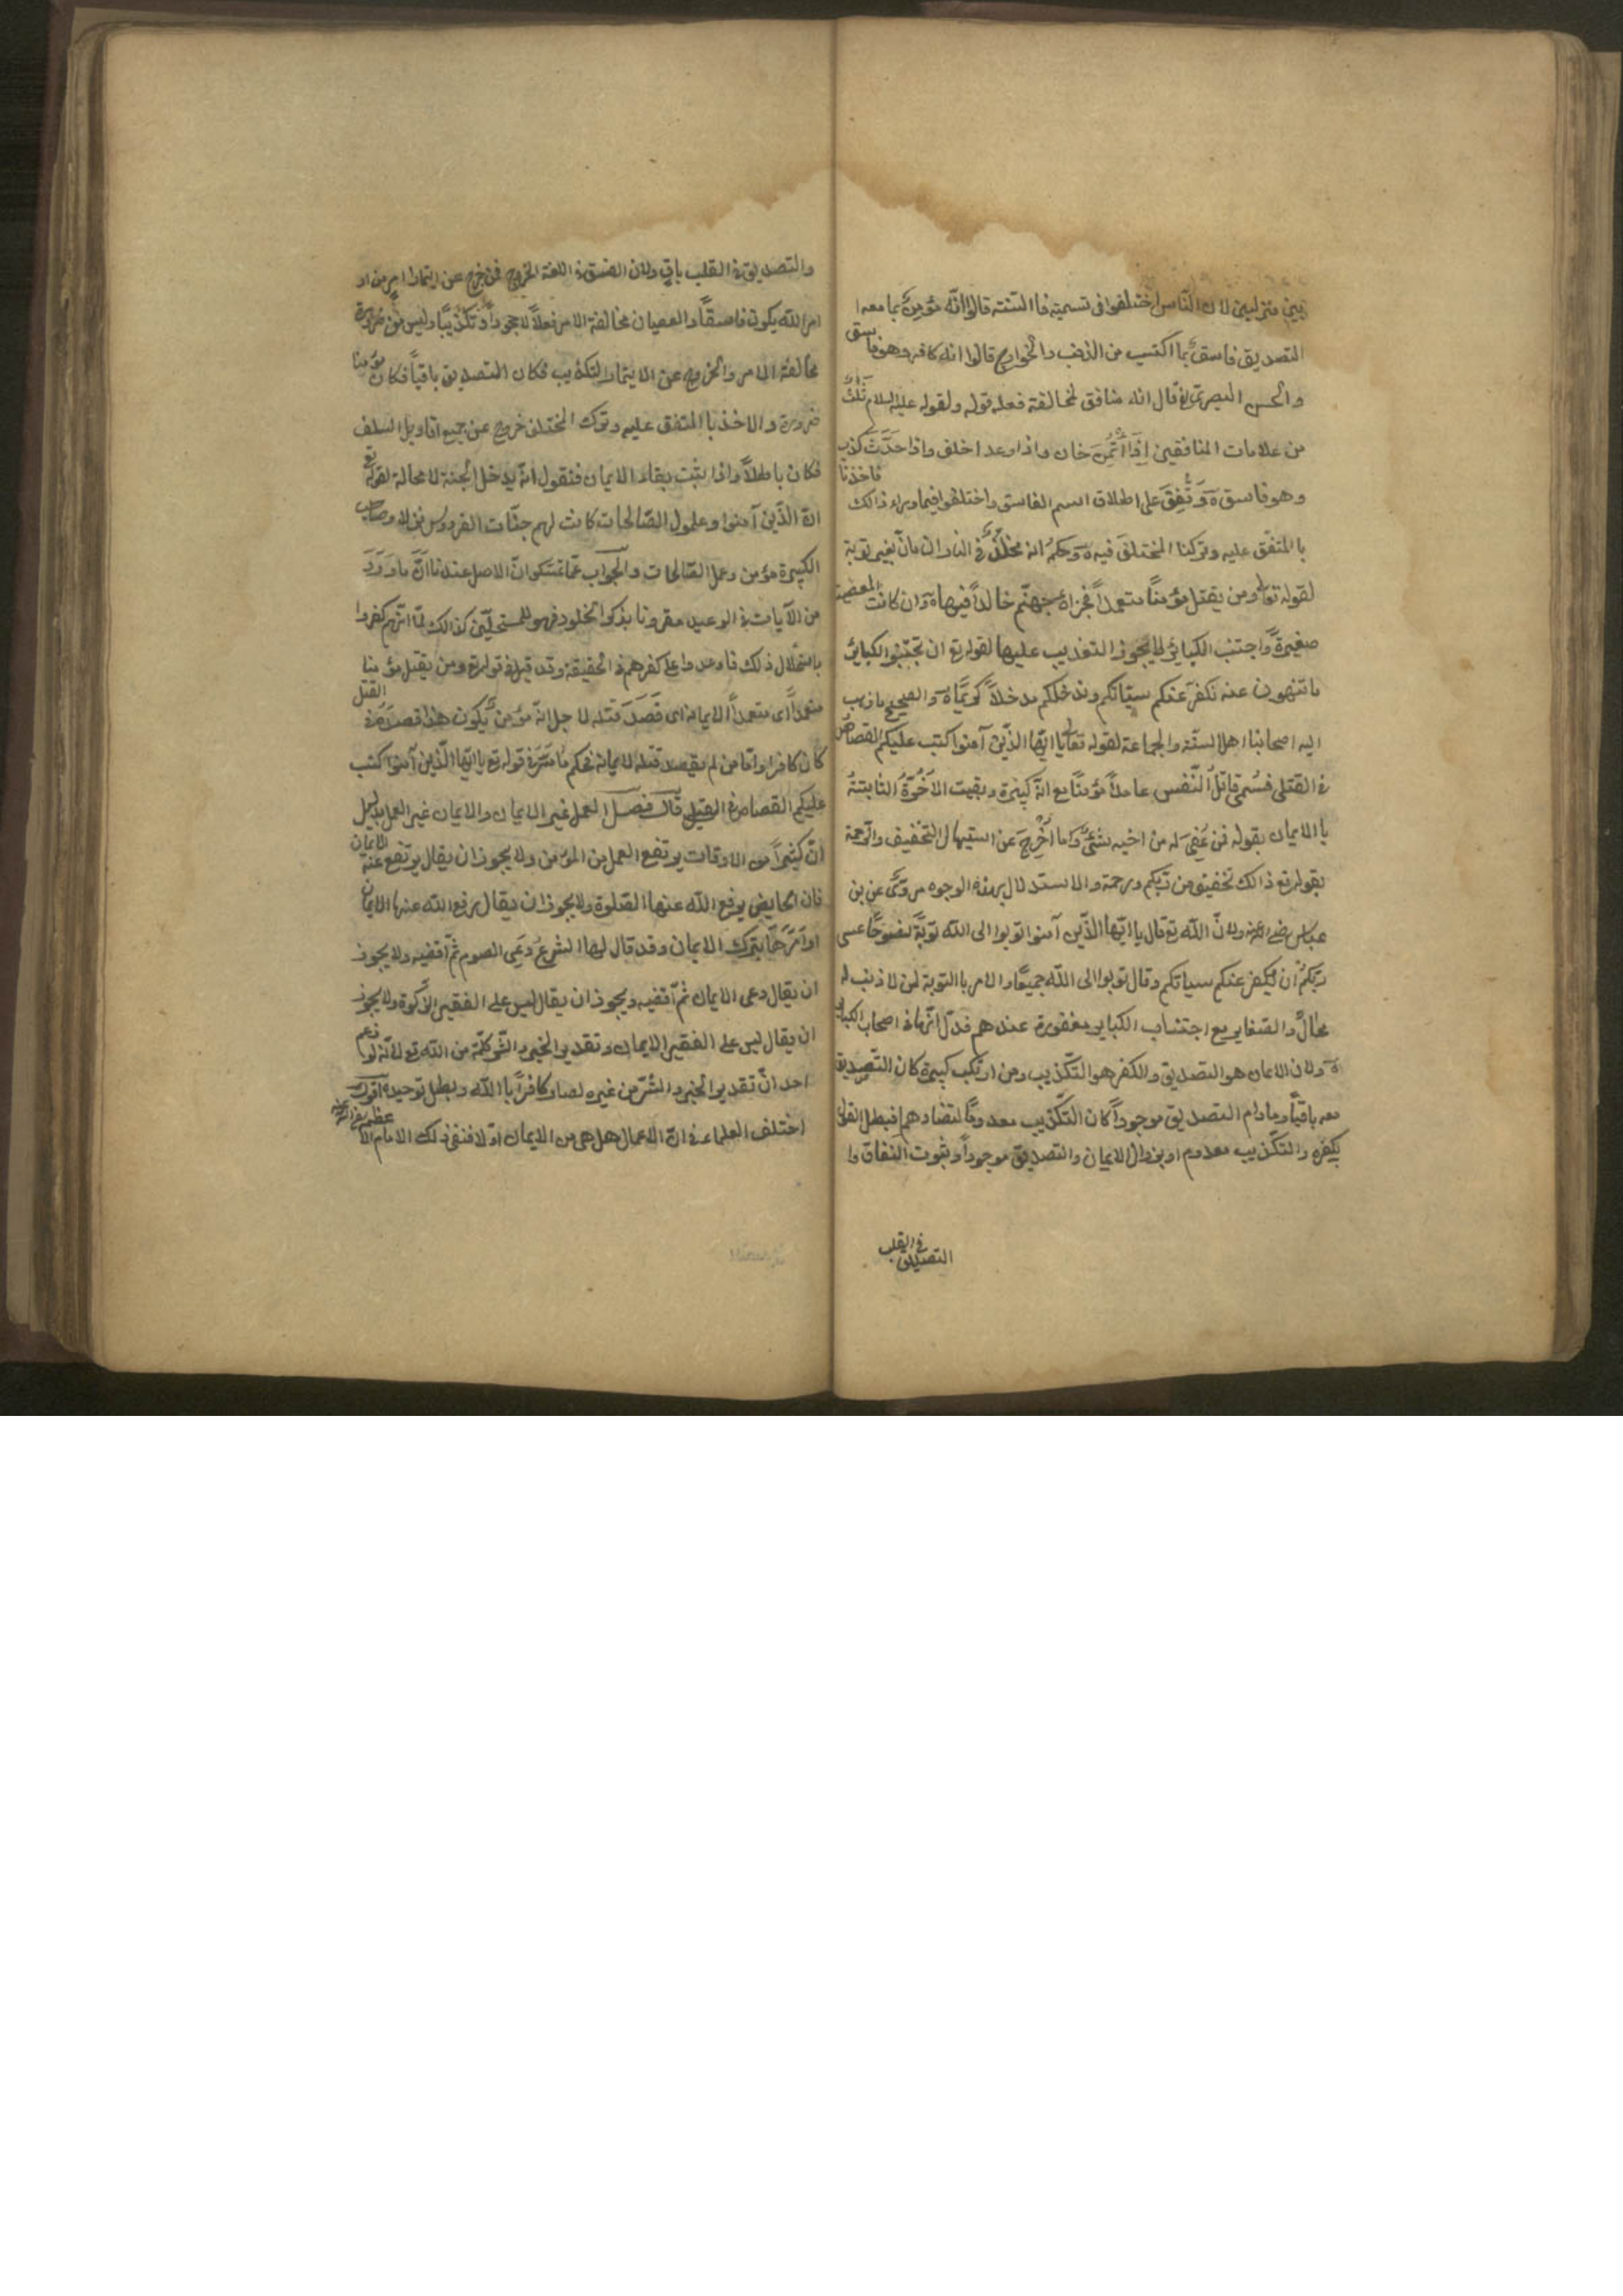 بين منزلين لان الناس اختلفوا فى تسميته فا السنته قالوا انّه مؤمنٌ بما معه ا
التصديق فاسقٌ بما اكتسب من الذنب والخوارج قالوا انه كافر وهو فاسق
والحسن البصرى قال انه منافق لمخالفة فعله قوله ولقوله عليه السلام ثلثٌ
من علامات المنافقين اِذَا اُتُمِنَ خان واذا وعد اخلف واذا حَدَّثَ كذب
وهو فاسق وَتُّفِقَ على اطلاق اسم الفاسق واختلفوا فيما وراء ذالك فاخذنا
با المتفق عليه وتركنا المختلف فيه وحكمُ انه مخلّدٌ فى النار ان مات بغير توبة
لقوله تعالى ومن يقتل مؤمنًا متعمداً فجزاؤه جهنّم خالداً فيها وان كانت المعصية
صغيرةً واجتنب الكبايرَ لا يجوز التعذيب عليها لقوله تع ان تجتنبوا الكباير
ما تنهون عنه نكفر عنكم سيّاتكم وندخلكم مدخلاً كريمًا والصحيح ما ذهب
اليه اصحابنا اهل السنّة والجماعة لقوله تعالى يا ايّها الذّين آمنوا كتب عليكم القصاص
فى القتلى فسُمّى قاتلُ النّفس عامداً مؤمنًا مع انهّ كبيرة وبقيت الاُخُوّةُ الثابتتةُ
با الايمان بقوله فمن عُفِىَ له من اخيه شئٌ وما اُخْرِجَ عن استيهال التخفيف والرحمة
بقوله تع ذالك تخفيف من ربّكم ورحمة والاستدلال بهذه الوجوه مروىٌّ عن بن
عباس رضى الله عنه ولانّ اللّه تع قال يا ايّها الذّين آمنوا توبوا الى اللّه توبةً نصوحًا عسى
ربّكم ان يكفر عنكم سياتكم وقال توبوا الى اللّه جميعًا والامر با التوبة لمن لا ذنب له
محالٌ والصغاير مع اجتناب الكباير مغفورة عندهم فدلّ انّها فى اصحاب الكباير
ولان الايمان هو التصديق والكفر هو التّكذيب ومن ارتكب كبيرة كان التّصديق
معه باقياً وما دام التصديق موجوداً كان التّكذيب معدومًا لتضادهما فبطل القول
بكفره والتكذيب معدوم او بزوال الايمان والتصديق موجوداً وثبوت النفاق وا
التصديق فى القلب
والتصديق فى القلب باقٍ ولان الفسق فى اللغة الخروج فمن خرج عن ايتمار امرٍ من او
امر اللّه يكون فاسقًا والعصيان مخالفة الامر فعلاً لا جحوداً وتكذيبًا وليس من ضرورة
مخالفة الامر والخروج عن الايتمار التكذيب فكان التصديق باقياً فكان مؤمنا
ضرورة والاخذ با المتفق عليه وترك المختلف خروج عن جميع اقاويل السلف
فكان باطلاً واذا يثبت بقاء الايمان فنقول انّه يدخل الجنة لا محالة لقوله تع
انّ الذّين آمنوا وعلموا الصّالحات كانت لهم جنّات الفردوس نزلا وصاحب
الكبيرة مؤمن وعمل الصّالحات والجواب عمّا تمسّكوا انّ الاصل عندنا انّ ما وَرَدَ
من الآيات فى الوعيد مقرونا بذكر الخلود فهو للمستحلّين كذالك لمّا انّهم كفروا
باستحلال ذلك فاوعدوا على كفرهم فى الحقيقة وقد قيل فى قوله تع ومن يقتل مؤمنا
متعمداً اى متعمداً الايمانه اى قَصَدَ قتله لاجل انّه مؤمنٌ يكون هذا قصدُهُ فى القتل
كان كافراً وامّا من لم يقصد قتله لايمانه فحكم ما مَرَّ فى قوله تع يا ايّها الّذين آمنوا كتب
عليكم القصاص فى القتلى قال فصل العمل غير الايمان والايمان غير العمل بدليل
انّ كثيراً من الاوقات يرتفع العمل من المؤمن ولا يجوز ان يقال يرتفع عنه الايمان
فان الحايض يرفع اللّه عنها الصّلوة ولا يجوز ان يقال يرفع اللّه عنها الايمان
او اَمَرَهَا بترك الايمان وقد قال لها الشرعُ دَعِى الصوم ثمّ اَقضيه ولا يجوز
ان يقال دعى الايمان ثمّ اَقضيه ويجوز ان يقال ليس على الفقير الزّكوة ولا يجوز
ان يقال ليس على الفقير الايمان وتقدير الخير والشّر كلّه من اللّه تع لانّه لو زعم
احد انّ تقدير الخير والشّر من غيره لصار كافراً با اللّه وبطل توحيده اقول
اختلف العلماء فى انّ الاعمال هل هى من الايمان او لا فنفى ذلك الامام الاعظم رضى الله عنه